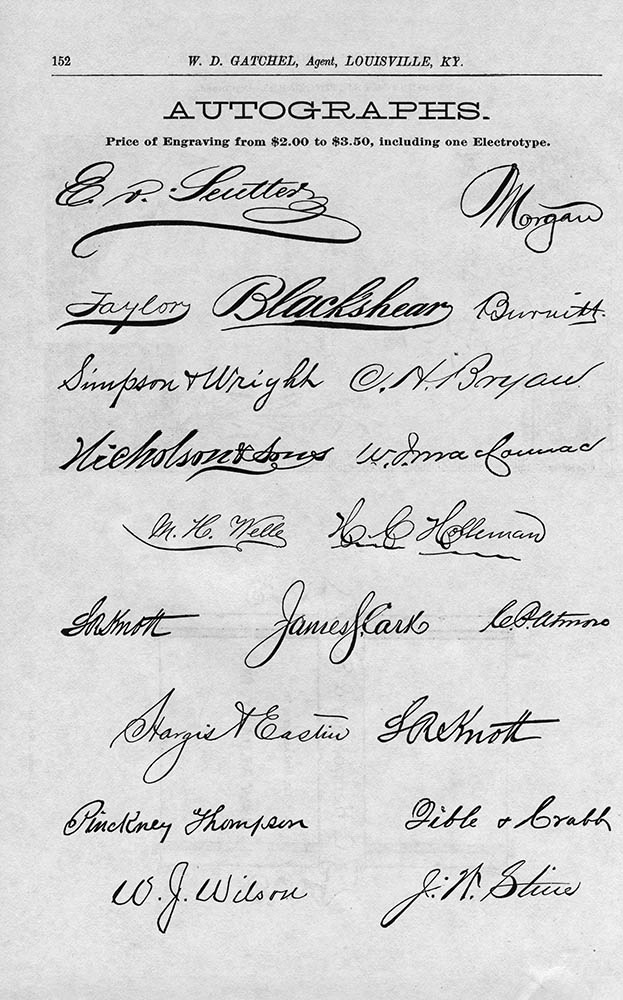 152 W. D. GATCHEL, Agent, LOUISVILLE, KY.
AUTOGRAPHS.
Price of Engraving from $2.00 to $3.50, including one Electrotype.
E. v. Seutter Morgan
Taylor Blackshear Burnitt.
Simpson & Wright C. H. Bryan
Nicholson & Sons W. J.
M. H. Wells H. C. Holleman
S. R. Knott James J. Cark C. P. Atmore
Hargis & Eastin S. R. Knott
Pinckney Thompson Tible & Crabb
W. J. Wilson J. W. Stine